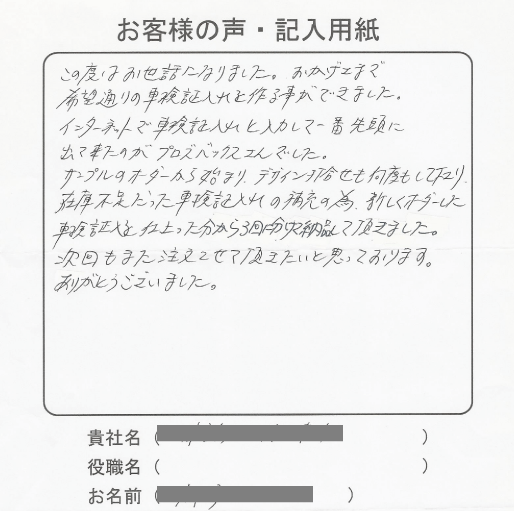 お客様の声・記入用紙
この度はお世話になりました。おかげさまで
希望通りの車検証入れを作る事ができました。
インターネットで車検証入れと入力して一番先頭に
出て来たのがプロズバックスさんでした。
サンプルのオーダーから始まり、デザイン打合せも何度もして下さり、
在庫不足だった車検証入れの補充の為、新しくオーダーした
車検証入を仕上った分から3回分次納品して頂きました。
次回もまた注文させて頂きたいと思っております。
ありがとうございました。
貴社名（ ）
役職名（ ）
お名前（ ）